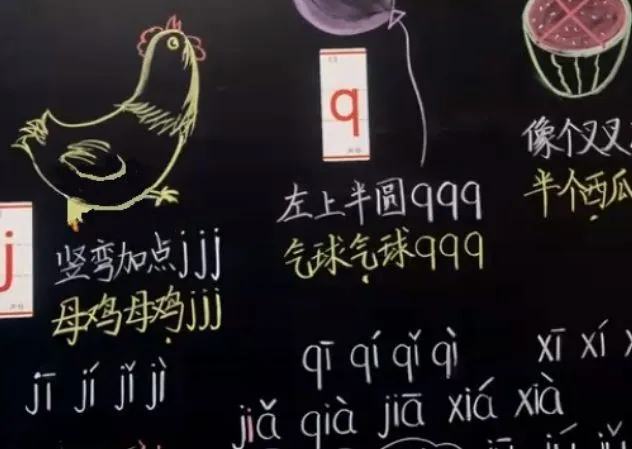 j
竖弯加点jjj
母鸡母鸡jjj
jī jí jǐ jì
q
左上半圆qqq
气球气球qqq
qī qí qǐ qì
像个叉叉
半个西瓜
xī xí
jiǎ qià jiā xiá xià